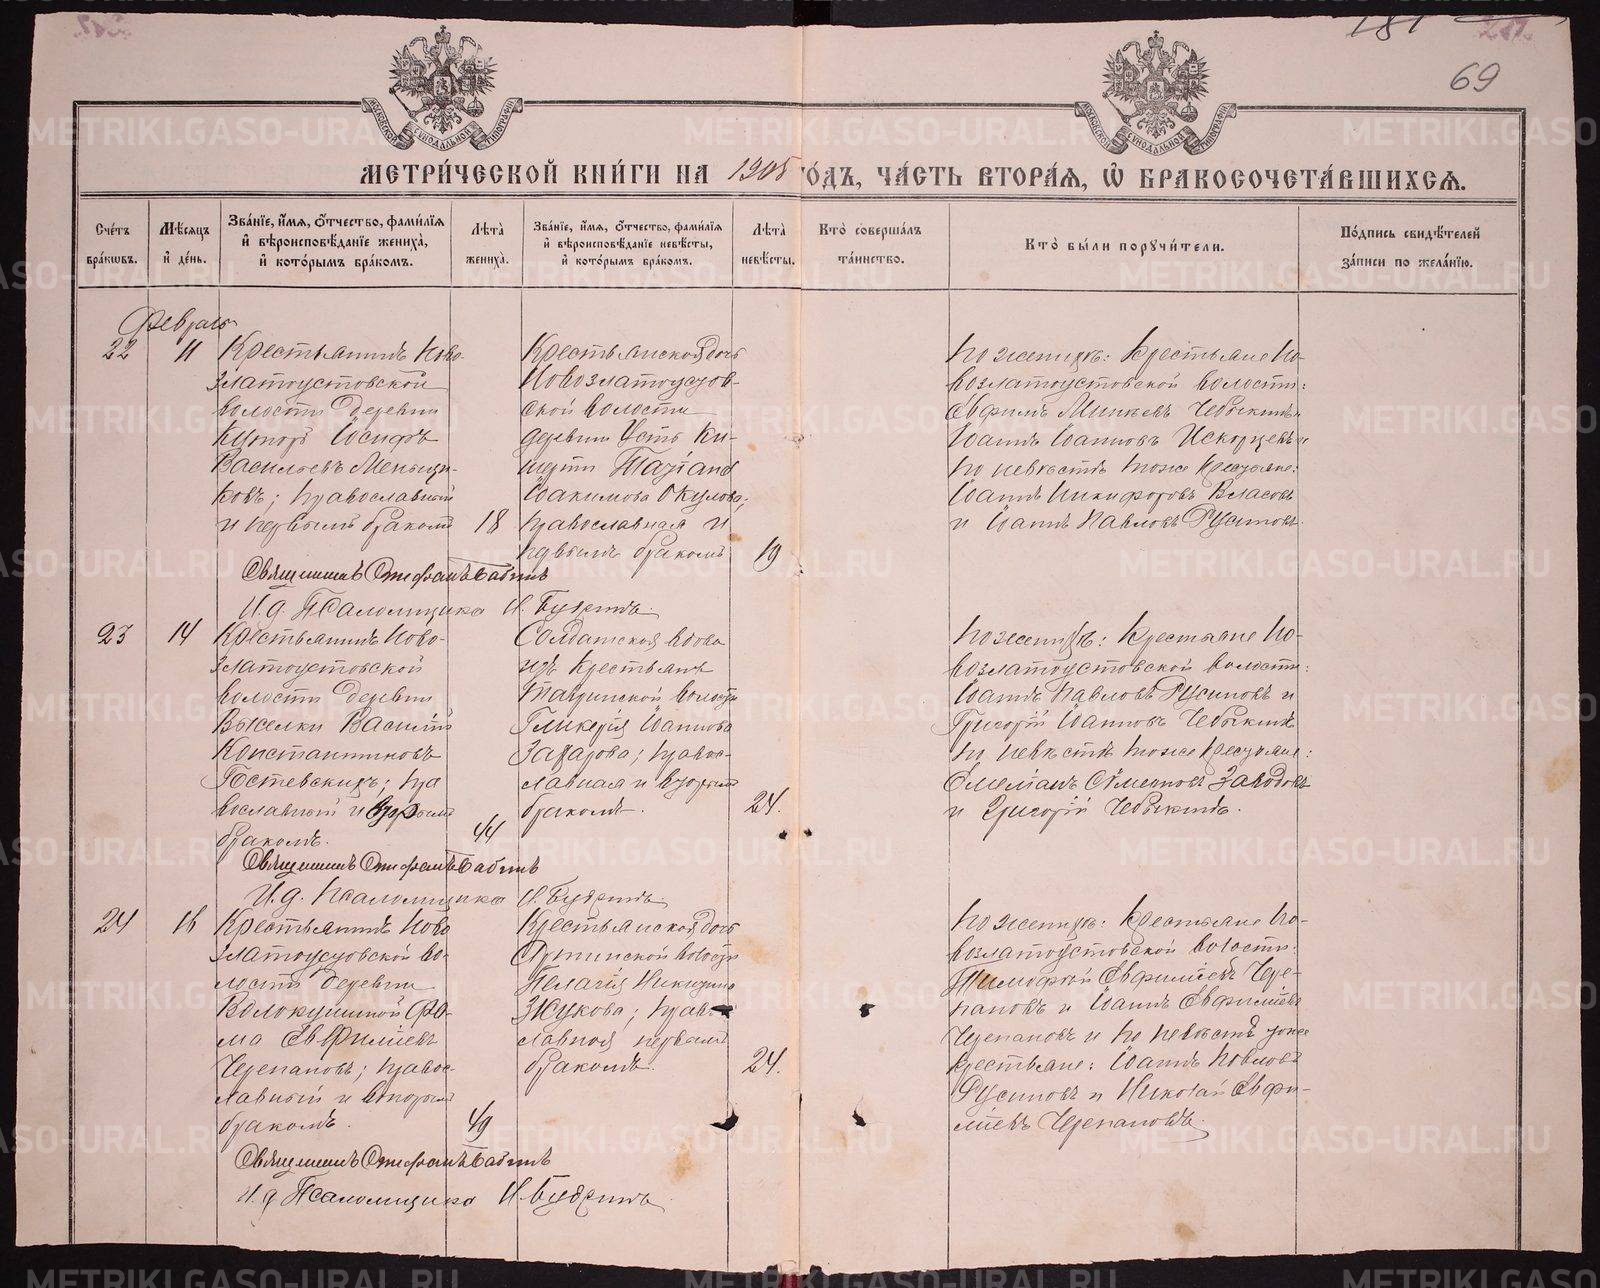 69
МЕТРИЧЕСКОЙ КНИГИ НА 1908 ГОДЪ, ЧАСТЬ ВТОРАЯ, Ѡ БРАКОСОЧЕТАВШИХСЯ.
Счетъ браковъ.
Мѣсяцъ и день.
Званіе, имя, отчество, фамилія и вѣроисповѣданіе жениха, и которымъ бракомъ.
Лѣта жениха.
Званіе, имя, отчество, фамилія и вѣроисповѣданіе невѣсты, и которымъ бракомъ.
Лѣта невѣсты.
Кто совершалъ таинство.
Кто были поручители.
Подпись свидѣтелей записи по желанію.
Февраль
22
11
Крестьянинъ Ново-
златоустовской
волости деревни
Іосифъ
Васильевъ Меньши-
ковъ; православный
и первымъ бракомъ
18
Крестьянская дочь
Новозлатоустов-
ской волости
деревни Усть Ки-
шерти
Іоакимова Окулова,
православная и
первымъ бракомъ
19
По женихѣ: крестьяне Но-
возлатоустовской волости:
Евфимъ Чебыкинъ и
Іоаннъ Іоанновъ Искорцевъ и
по невѣстѣ тоже крестьяне:
Іоаннъ Никифоровъ Власовъ
и Іоаннъ Павловъ Русиновъ.
Священникъ
И. д. Псаломщика
23
14
Крестьянинъ Ново-
златоустовской
волости деревни
Выселки Василій
Константиновъ
Гостевскихъ; пра
вославный и вторымъ
бракомъ.
44
Солдатская вдова
изъ крестьянъ
Тавринской волости
Гликерія Іоаннова
Захарова; правос-
лавная и вторымъ
бракомъ.
24.
По женихѣ: крестьяне Но-
возлатоустовской волости:
Іоаннъ Павловъ Русиновъ и
Григорій Іоанновъ Чебыкинъ
по невѣстѣ тоже крестьяне:
Емеліанъ Симеоновъ Заводовъ
и Григорій Чебыкинъ.
Священникъ
И. д. Псаломщика
24
16
Крестьянинъ Ново
златоустовской во-
лости деревни
Волокушиной Ѳо-
ма Евфиміевъ
Черепановъ; правос-
лавный и вторымъ
бракомъ.
49
Крестьянская дочь
волости
Пелагія Никитина
Жукова; правос-
лавная первымъ
бракомъ.
24.
По женихѣ: крестьяне Но-
возлатоустовской волости:
Тимофей Евфиміевъ Чере-
пановъ и Іоаннъ Евфиміевъ
Черепановъ и по невѣстѣ тоже
крестьяне: Іоаннъ Павловъ
Русиновъ и Николай Евфи-
міевъ Черепановъ.
Священникъ
И. д Псаломщика
METRIKI.GASO-URAL.RU